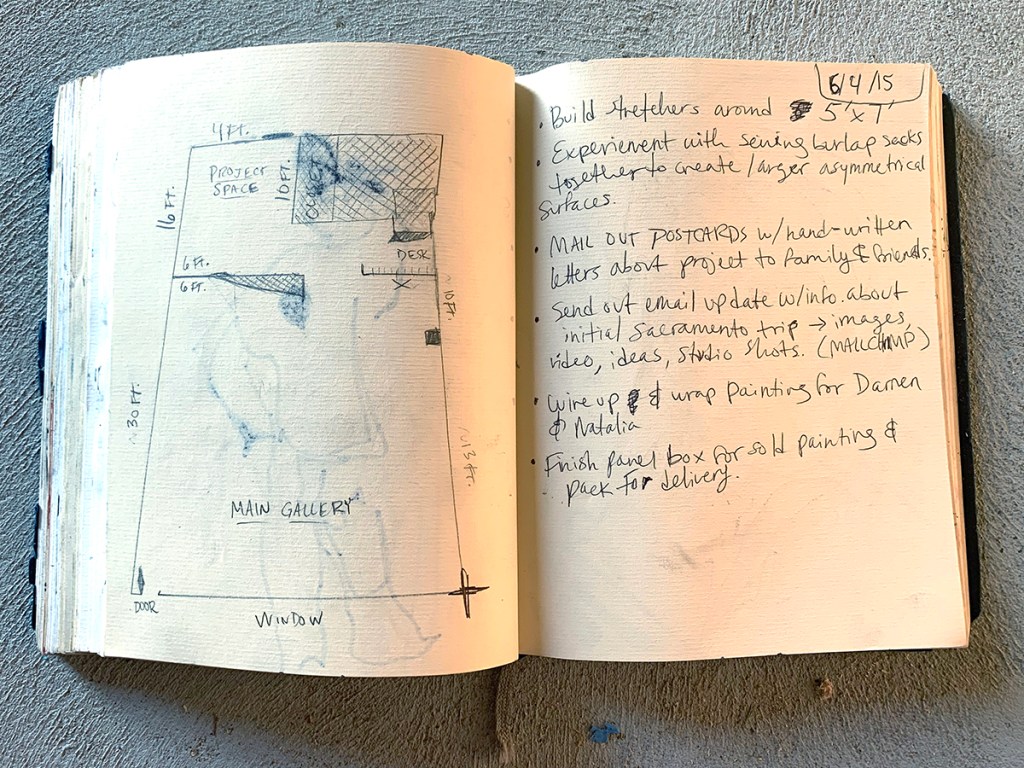 4 FT.
PROJECT
SPACE
10 FT.
16 FT.
DESK
6 FT.
6 FT.
X
~10 FT.
~30 FT.
~13 FT.
MAIN GALLERY
DOOR
WINDOW
6/4/15
• Build stretchers around 5' x 7'
• Experienent with sewing burlap sacks
together to create larger asymmetrical
surfaces.
• MAIL OUT POSTCARDS w/hand-written
letters about project to family & friends.
• Send out email update w/info. about
initial Sacramento trip → images,
video, ideas, studio shots. (MAILCHIMP)
• Wire up & wrap painting for Darren
& Natalia
• Finish panel box for sold painting &
pack for delivery.